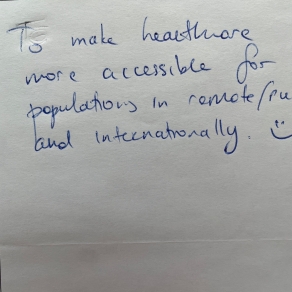 To make healthcare
more accessible for
populations in remote/ru
and internationally. :)